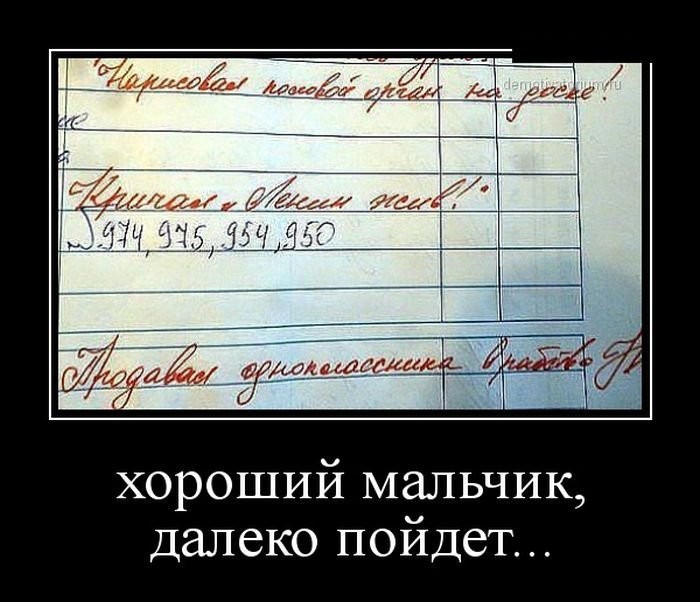 Нарисовал половой орган на доске!
demotivatorium.ru
Кричал „Ленин жив!"
№ 974, 975, 954, 950
Продавал одноклассника в рабство
хороший мальчик,
далеко пойдет...